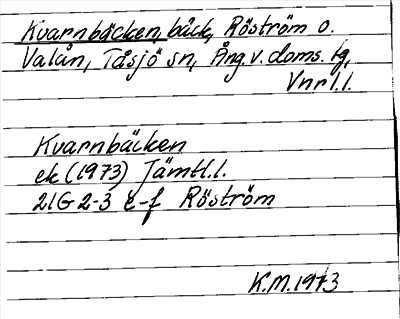 Kvarnbäcken, bäck, Röström o.
Valån, Tåsjö sn, Ång. v. doms. tg,
Vnrl. l.
Kvarnbäcken
ek (1973) Jämtl. l.
21G 2-3 e-f Röström
K.M. 1973